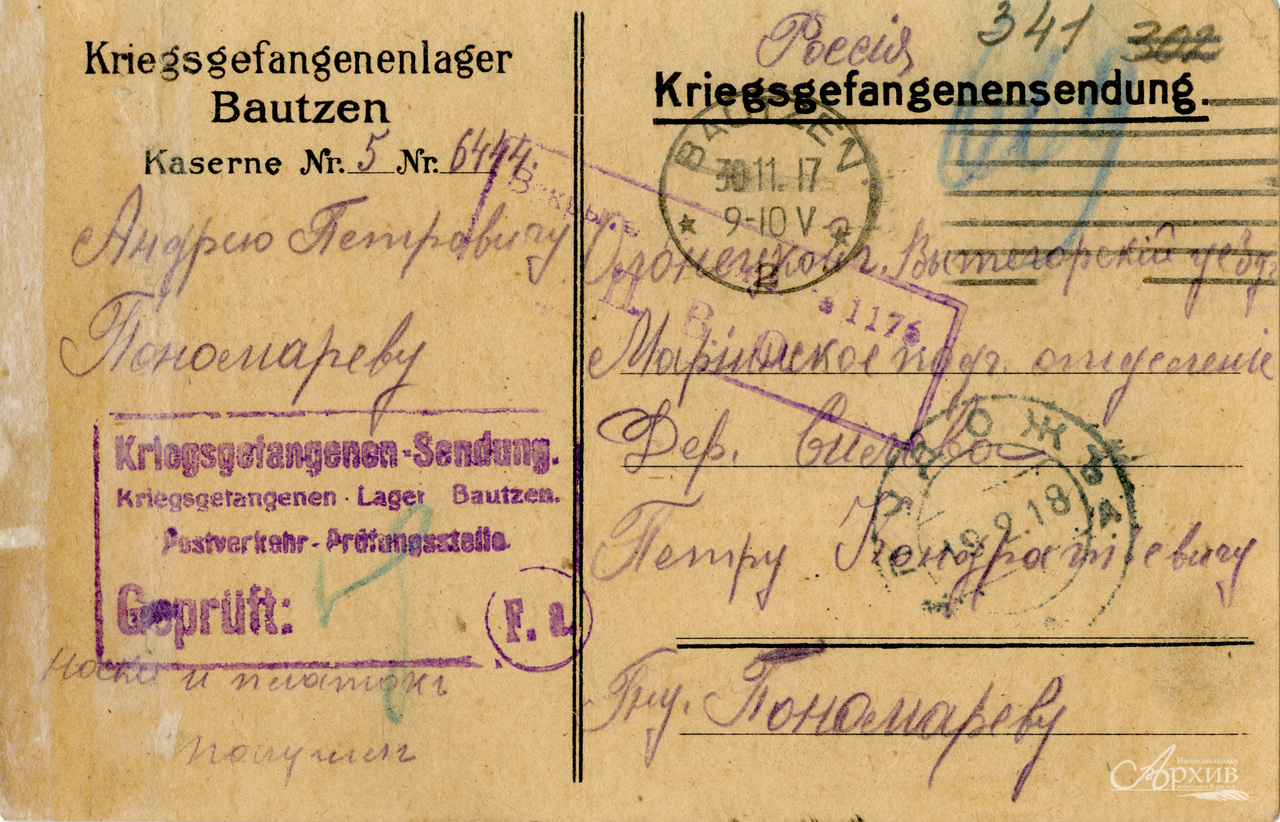 Kriegsgefangenenlager
Bautzen
Kaserne Nr. 5 Nr. 6444.
Андрею Петравичу
Пономареву
Kriegsgefangenen-Sendung.
Kriegsgefangenen-Lager Bautzen.
Postverkehr-Prüfungsstelle
Geprüft:
F. a.
Носки и платокъ
получилъ
Россія
341
302
Kriegsgefangenensendung.
BAUTZEN
30.11.17
9-10 V
2
Вскрыто
П В
1176
Олонецкой г. Вытегорскій уезд
Маріинское подч. отделеніе
Дер.
19.2.18
Петру Кондратьевичу
Гну. Пономареву
Национальный
Архив
Республики Карелия